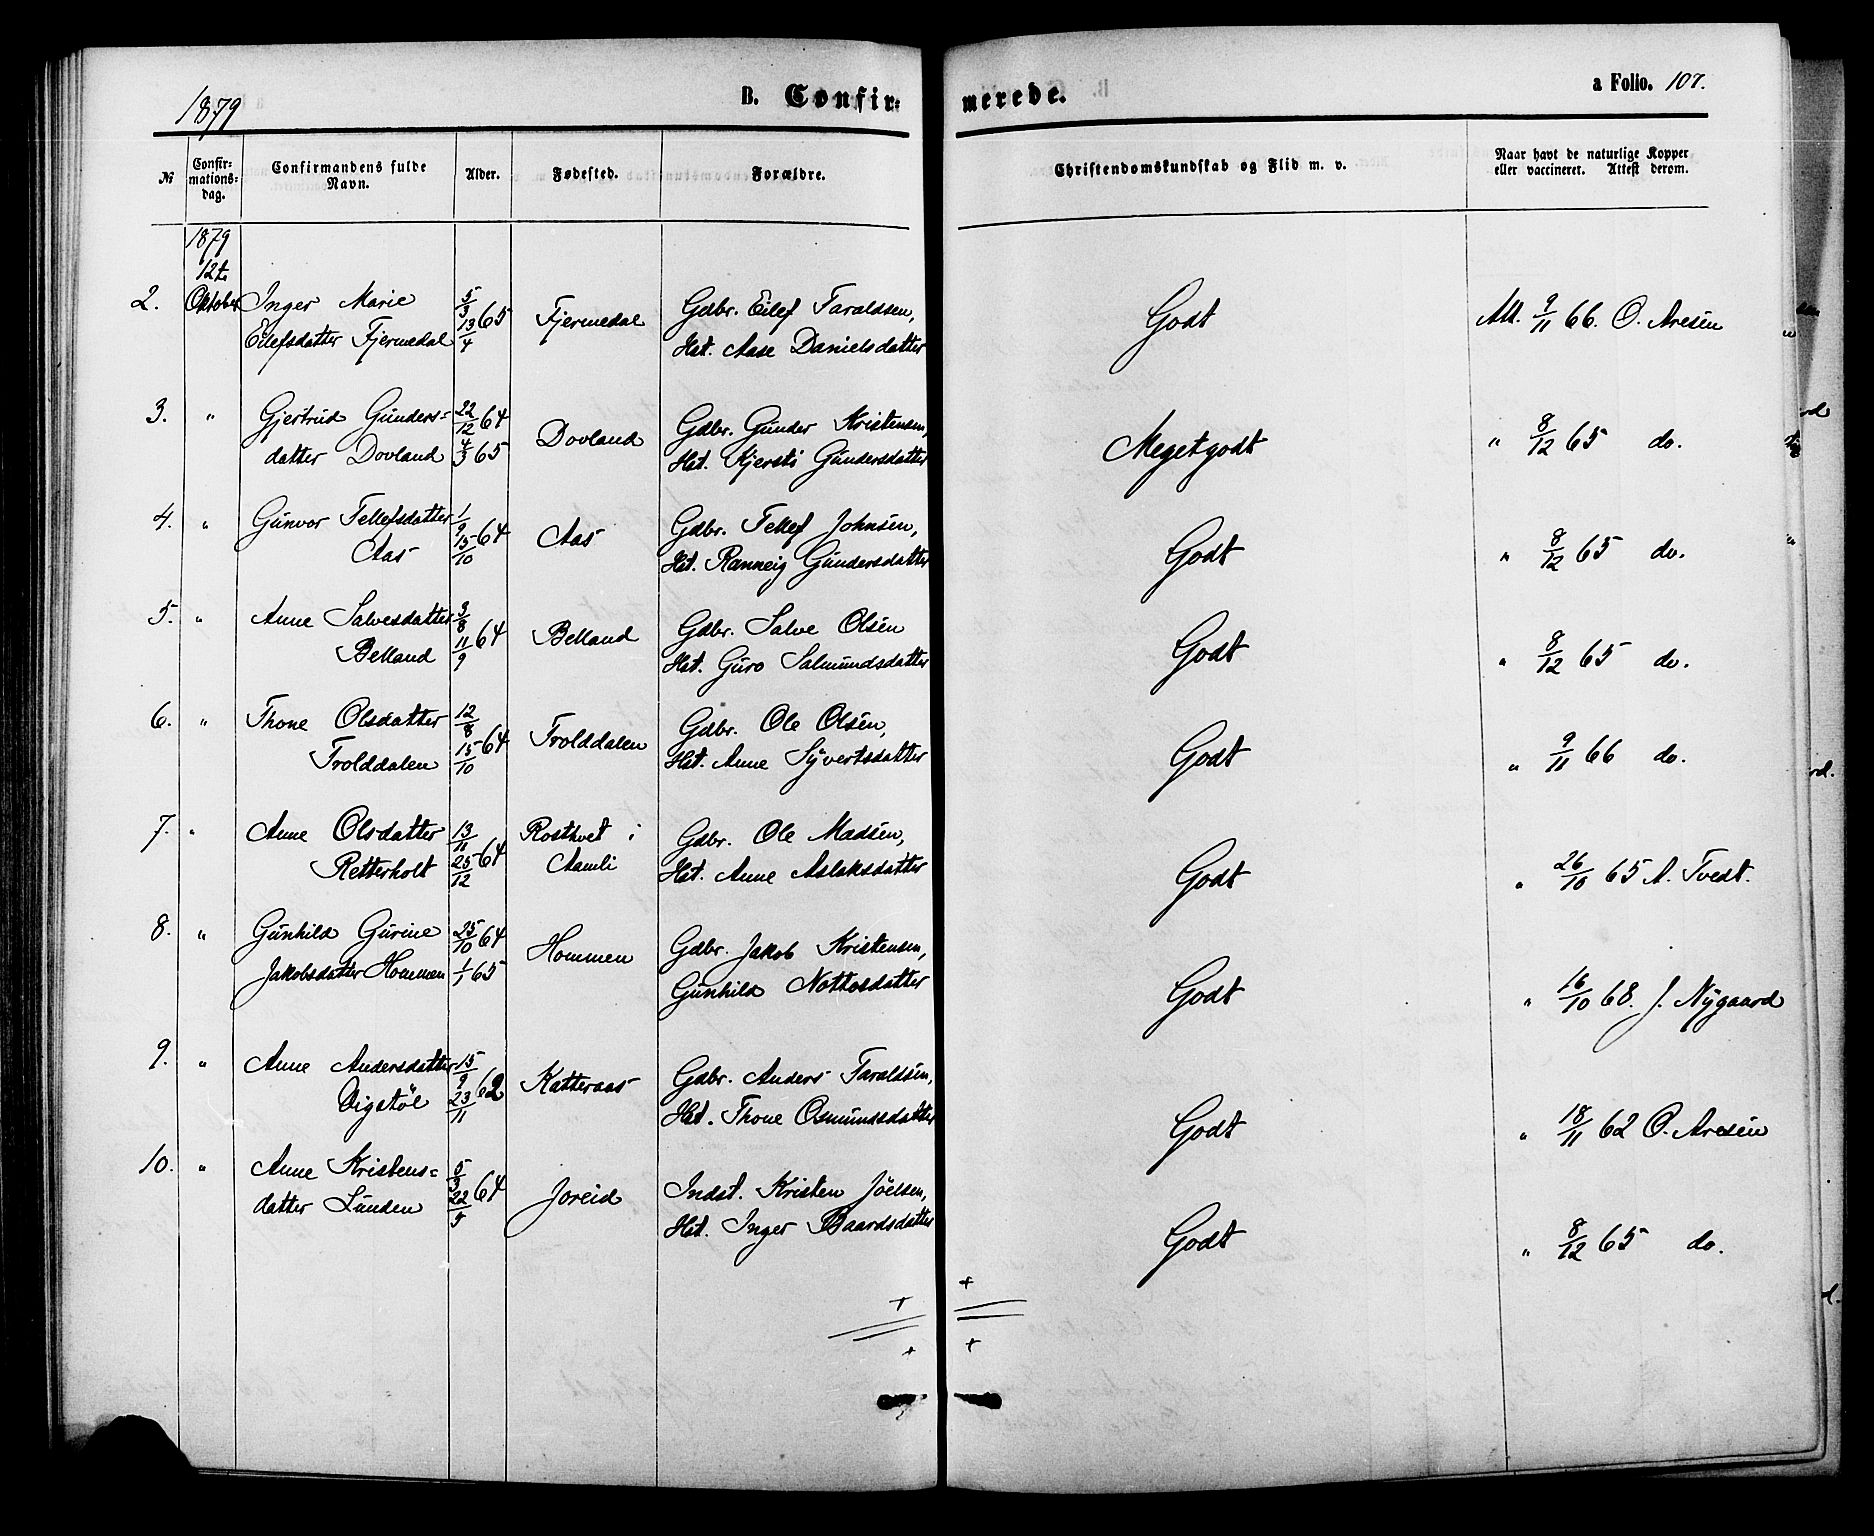 1879
B. Confir:
merede.
a Folio. 107.
№
Confir=
mations=
dag.
Confirmandens fulde
Navn.
Alder.
Fødested.
Forældre.
Christendomskundskab og Flid m. v.
Naar havt de naturlige Kopper
eller vaccineret. Attest derom.
1879
12t.
2. Oktober Inger Marie 5/3 65 Fjermedal Gdbr. Eilef Taraldsen, Godt Att. 9/11 66. O. Aresen
Eilefsdatter Fjermedal 13/4 Hst. Aase Danielsdatter
3. " Gjertrud Gunders= 22/12 64 Dovland Gdbr. Gunder Kristensen, Megetgodt " 8/12 65 do.
datter Dovland 4/3 65 Hst. Kjersti Gundersdatter
4. " Gunvor Tellefsdatter 1/9 64 Aas Gdbr. Tellef Johnsen, Godt " 8/12 65 do.
Aas 15/10 Hst. Ranneig Gundersdatter
5. " Anne Salvesdatter 3/8 64 Belland Gdbr. Salve Olsen Godt " 8/12 65 do.
Belland 11/9 Hst. Guro Salmundsdatter
6. " Thone Olsdatter 12/8 64 Trolddalen Gdbr. Ole Olsen, Godt " 9/11 66 do.
Trolddalen 15/10 Hst. Anne Syvertsdatter
7. " Anne Olsdatter 13/11 64 Rosthvet i Gdbr. Ole Madsen, Godt " 26/10 65 A. Tvedt.
Retterholt 25/12 Aamli Hst. Anne Aslaksdatter
8. " Gunhild Gurine 25/10 64 Hommen Gdbr. Jakob Kristensen, Godt " 16/10 68. J. Nygaard
Jakobsdatter Hommen 1/1 65 Gunhild Nottosdatter
9. " Anne Andersdatter 15/9 62 Katteraas Gdbr. Anders Taraldsen, Godt " 18/11 62 O. Aresen
Vigstøl 23/11 Hst. Thone Osmundsdatter
10. " Anne Kristens= 5/3 64 Joreid Indst. Kristen Joelsen, Godt " 8/12 65 do.
datter Lunden 22/5 Hst. Inger Baardsdatter